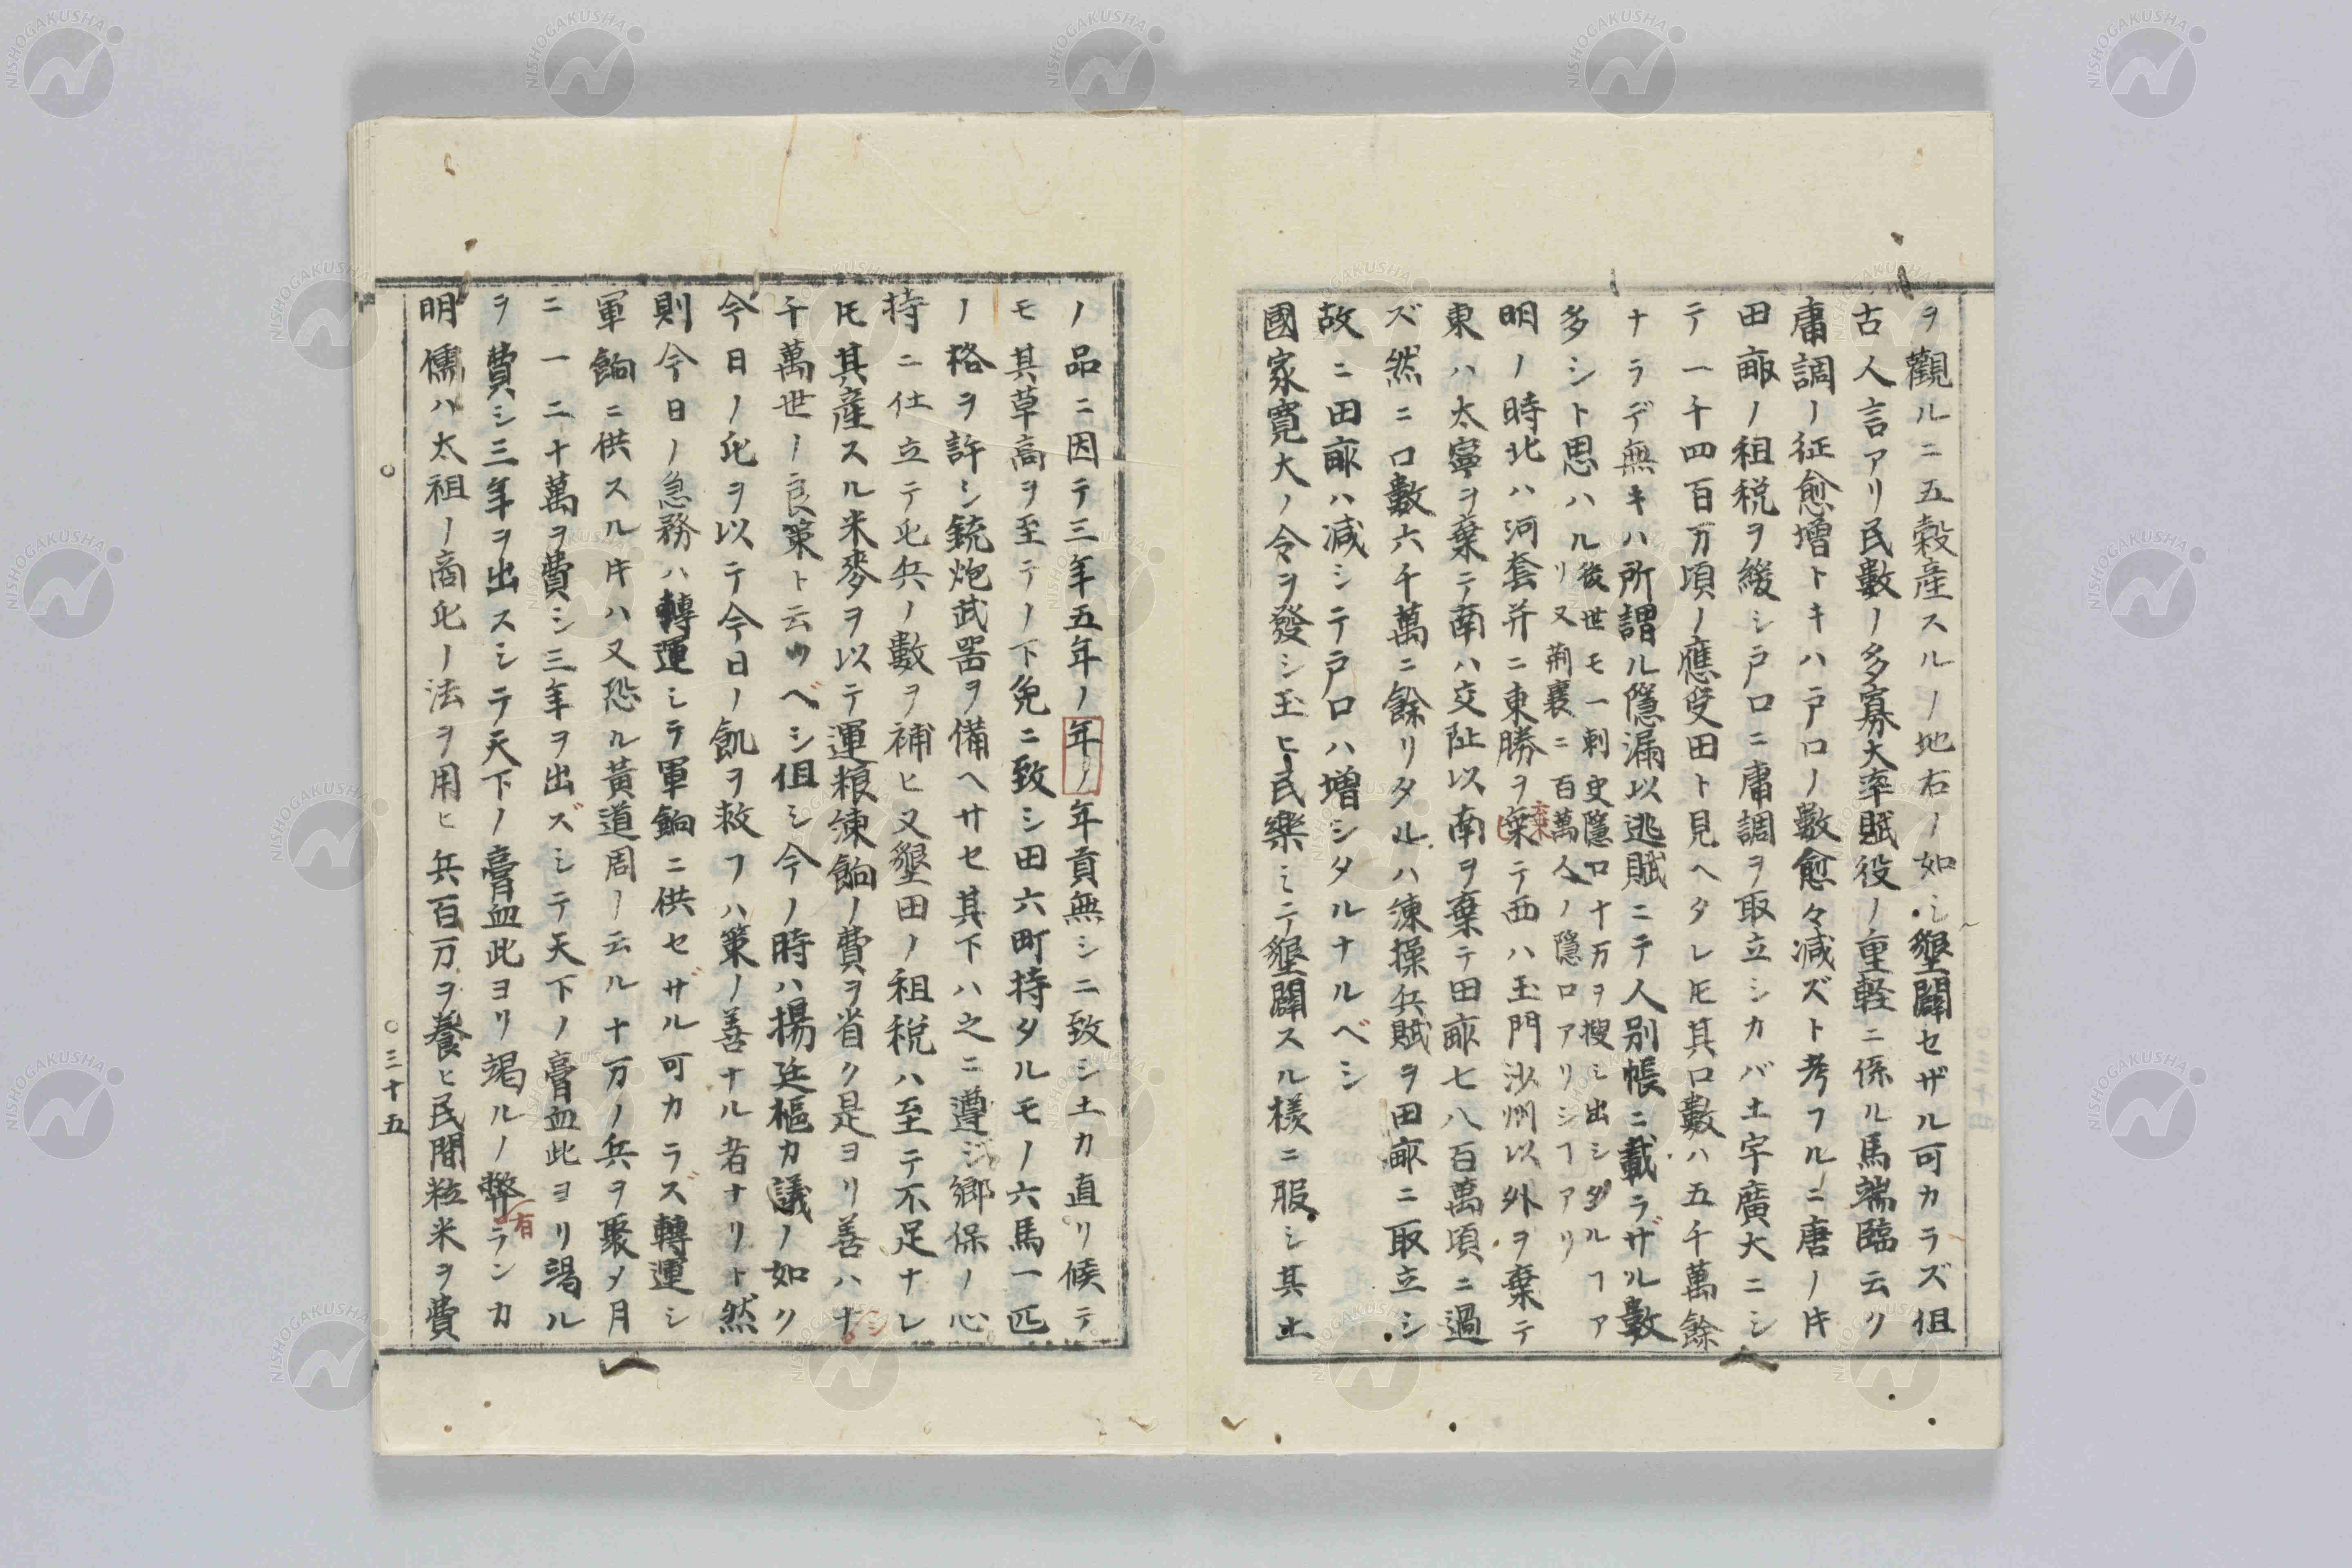 ヲ觀ルニ五穀産スルノ地右ノ如シ墾闢セザル可カラズ但
古人言アリ民數ノ多寡大率賦役ノ重軽ニ係ル馬端臨云ク
庸調ノ征愈增トキハ戸口ノ數愈々减ズト考フルニ唐ノ片
田畞ノ祖税ヲ緩シ戸口ニ庸調ヲ取立シカバ土宇廣大ニシ
テ一千四百万頃ノ應受田ト見ヘタレ𪜈其口數ハ五千萬餘
ナラデ無キハ所謂ル隱漏以逃賦ニテ人別帳ニ載ラザル數
多シト思ハル後世モ一刺史隱口十万ヲ搜シ出シタルヿア
リ又荆襄ニ百萬人ノ隱口アリシヿアリ
明ノ時北ハ河套并ニ東勝ヲ棄テ西ハ玉門沙州以外ヲ棄テ
棄
ヒ
東ハ太寧ヲ棄テ南ハ交阯以南ヲ棄テ田畞七八百萬頃ニ過
ズ然ニ口數六千萬ニ餘リタルハ練操兵賦ヲ田畞ニ取立シ
故ニ田畞ハ减シテ戸口ハ增シタルナルベシ
國家寬大ノ令ヲ發シ玉ヒ民樂ミテ墾闢スル様ニ服シ其土
ノ品ニ因テ三年五年ノ年ノ年貢無シニ致シ土カ直リ候テ
モ其草高ヲ至テノ下免ニ致シ田六町持タルモノ六馬一匹
ノ格ヲ許シ銃炮武器ヲ備ヘサセ其下ハ之ニ遵ジ郷保ノ心
持ニ仕立テ屯兵ノ數ヲ補ヒ又墾田ノ祖税ハ至テ不足ナレ
𪜈其産スル米麥ヲ以テ運粮練餉ノ費ヲ省ク是ヨリ善ハナ
シ
千萬世ノ良策ト云ツベシ但シ今ノ時ハ揚廷樞カ議ノ如ク
今日ノ屯ヲ以テ今日ノ飢ヲ救フハ策ノ善ナル者ナリト然
則今日ノ急務ハ轉運シテ軍餉ニ供セザル可カラズ轉運シ
軍餉ニ供スル片ハ又恐ル黃道周ノ云ル十万ノ兵ヲ聚メ月
ニ一二十萬ヲ費シ三年ヲ出ズシテ天下ノ膏血此ヨリ竭ル
ヲ費シ三年ヲ出スシテ天下ノ膏血此ヨリ竭ルノ弊ランカ
有
明儒ハ太祖ノ商屯ノ法ヲ用ヒ兵百万ヲ養ヒ民間粒米ヲ費
○
○三十五
NISHOGAKUSHA